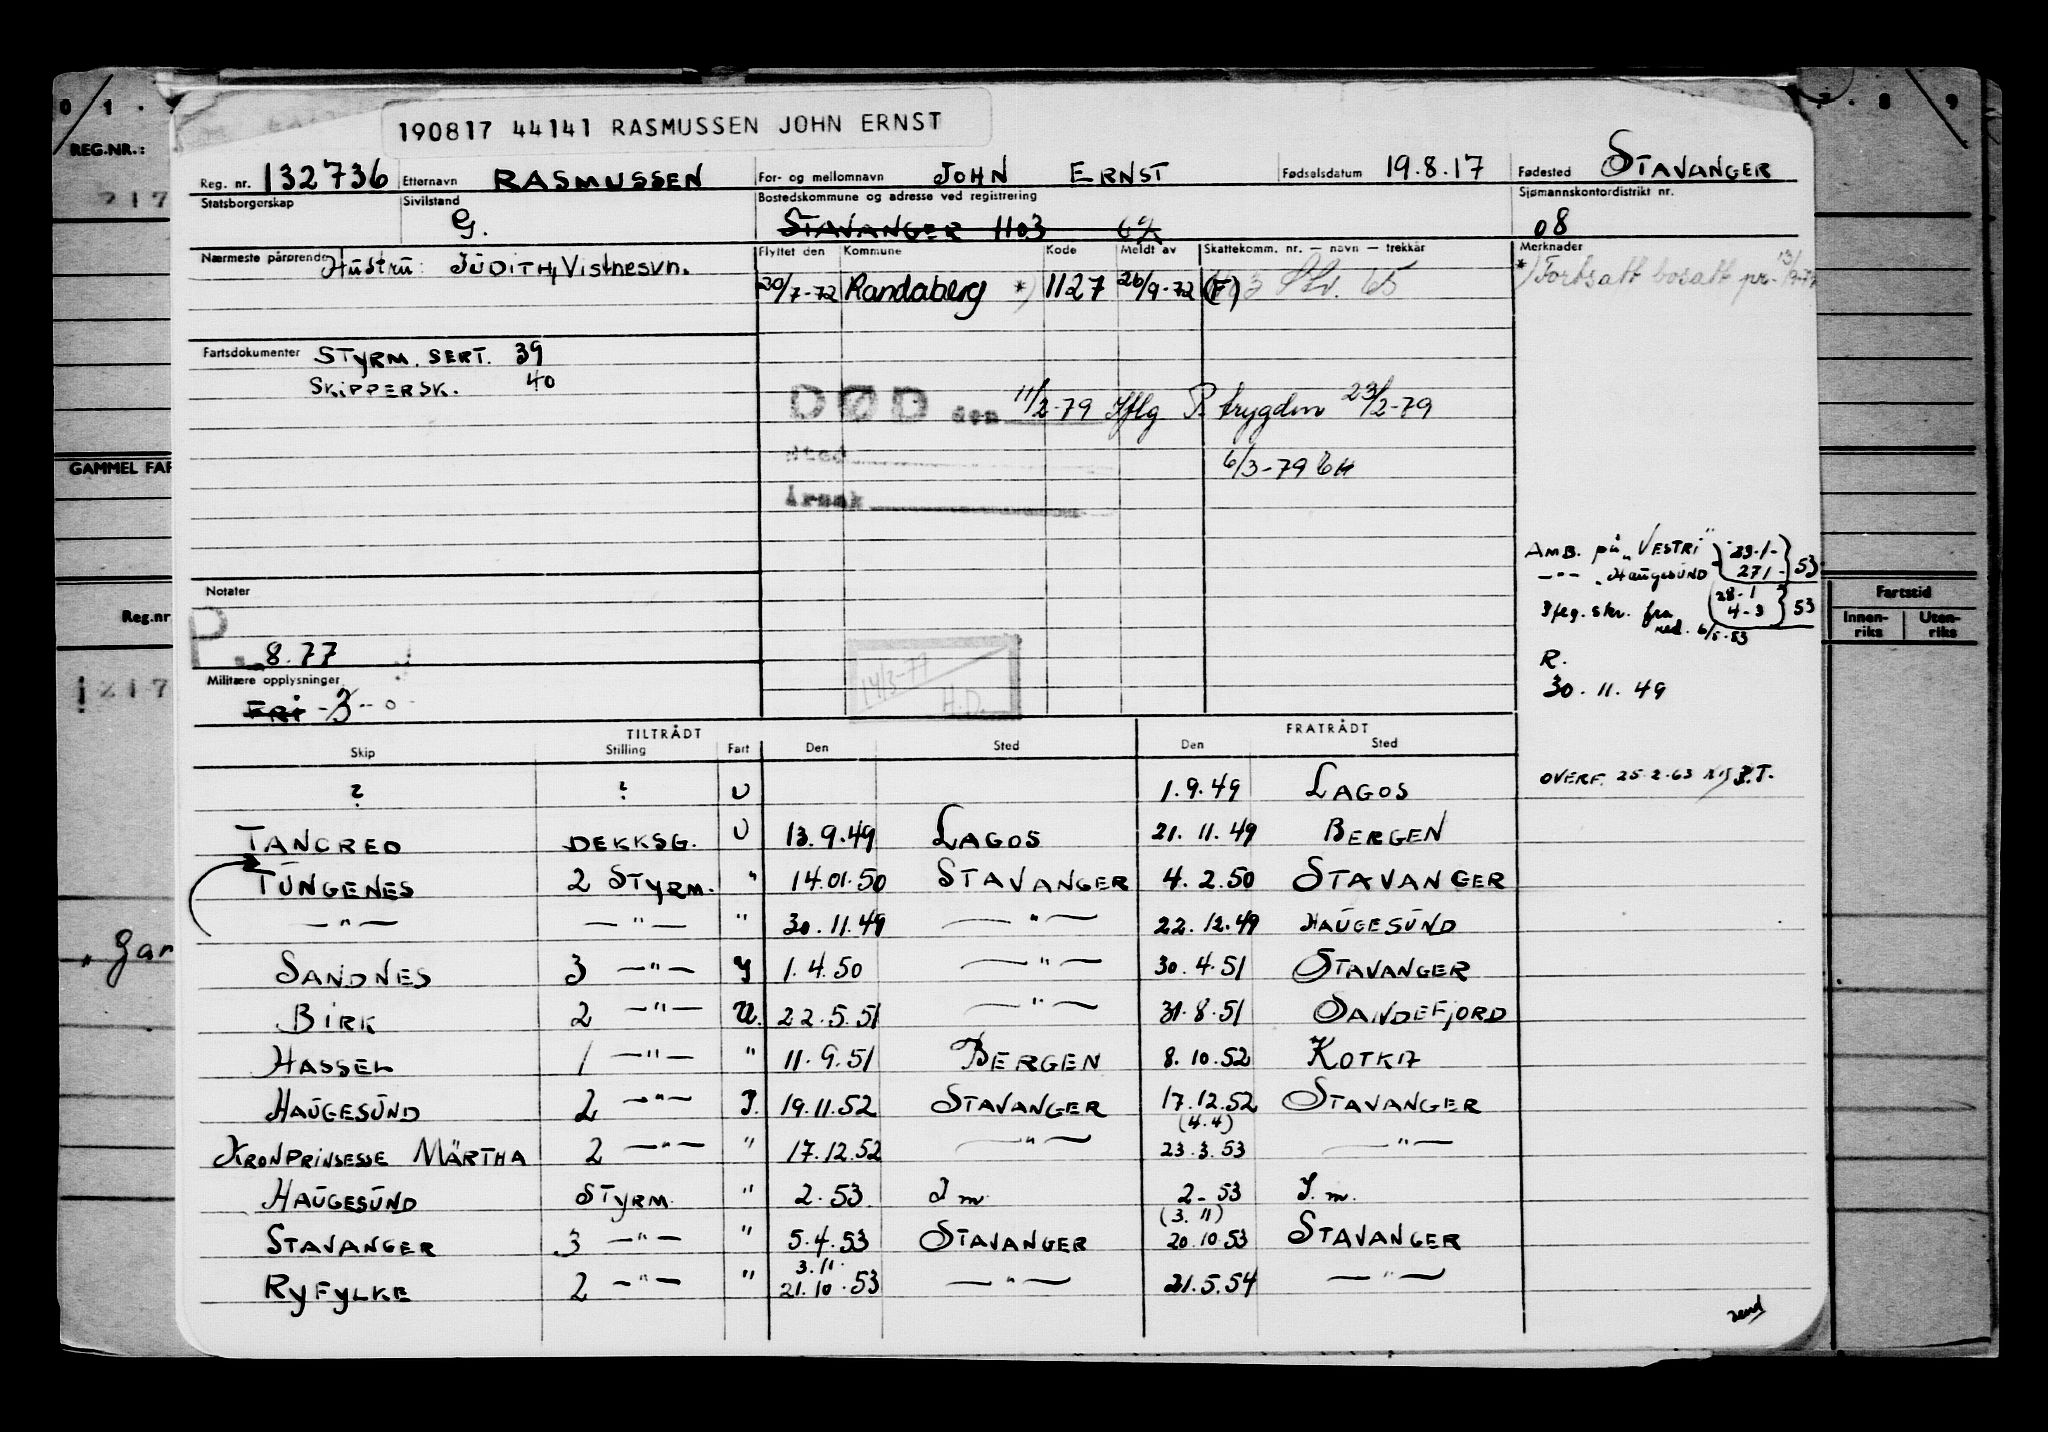 190817 44141 RASMUSSEN JOHN ERNST
REG.NR.:
Reg. nr. 132736 Etternavn RASMUSSEN For- og mellomnavn JOHN ERNST Fødselsdatum 19.8.17 Fødested STAVANGER
Statsborgerskap Sivilstand G. Bostedskommune og adresse ved registrering STAVANGER 1103 Sjømannskontordistrikt nr. 08
Nærmeste pårørende Hustru: JUDITH, Vistnesvn. Flyttet den Kommune Kode Meldt av Skattekomm. nr. — navn — trekkår Merknader
30/7-72 Randaberg *) 1127 26/9-72 (F) *) Fortsatt bosatt pr.
Fartsdokumenter STYRM. SERT. 39
SKIPPERSK. 40
DØD den 11/2-79 Iflg P. trygden 23/2-79
Sted
6/3-79
Årsak
GAMMEL FAR
AMB. på "VESTRI" 23-1- 27/- 53
—"— HAUGESUND 28-1 4-3 53
Iflg. skr. fra red. 6/5-53
Notater
P. 8.77
14/3-77 H.D.
R.
30. 11. 49
Militære opplysninger
FRI -3--0
Reg.nr
Fartstid
Innen-riks Uten-riks
TILTRÅDT FRATRÅDT
Skip Stilling Fart Den Sted Den Sted
? ? U 1.9.49 LAGOS OVERF. 25-2-63
TANCRED DEKKSG. U 13.9.49 LAGOS 21. 11. 49 BERGEN
TUNGENES 2 STYRM. " 14.01.50 STAVANGER 4. 2. 50 STAVANGER
—"— —"— " 30. 11. 49 —"— 22. 12. 49 HAUGESUND
SANDNES 3 —"— I 1. 4. 50 —"— 30. 4. 51 STAVANGER
BIRK 2 —"— U. 22. 5. 51 —"— 31. 8. 51 SANDEFJORD
HASSEL 1 —"— " 11. 9. 51 BERGEN 8. 10. 52 KOTKA
HAUGESUND 2 —"— I. 19.11.52 STAVANGER 17.12.52 STAVANGER
(4.4)
KRONPRINSESSE MÄRTHA 2 —"— " 17.12.52 —"— 23.3.53 —"—
HAUGESUND STYRM. " 2. 53. I m. 2- 53 I. m.
(3. 11)
STAVANGER 3 —"— " 5.4.53 STAVANGER 20.10.53 STAVANGER
3. 11.
RYFYLKE 2 —"— " 21. 10. 53 —"— 21. 5. 54 —"—
vend